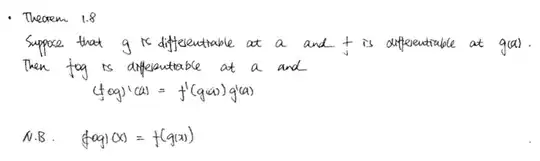 • Theorem 1.8
Suppose that g is differentiable at a and f is differentiable at g(a).
Then fog is differentiable at a and
(fog)'(a) = f'(g(a)) g'(a)
N.B. (fog)(x) = f(g(x))